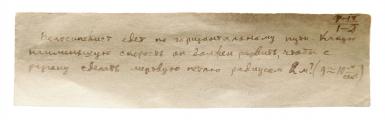 Велосипедист едет по горизонтальному пути. Какую
наименьшую скорость он должен развить, чтобы с
разгону сделать мертвую петлю радиусом R м? (g≈10 м/сек²)